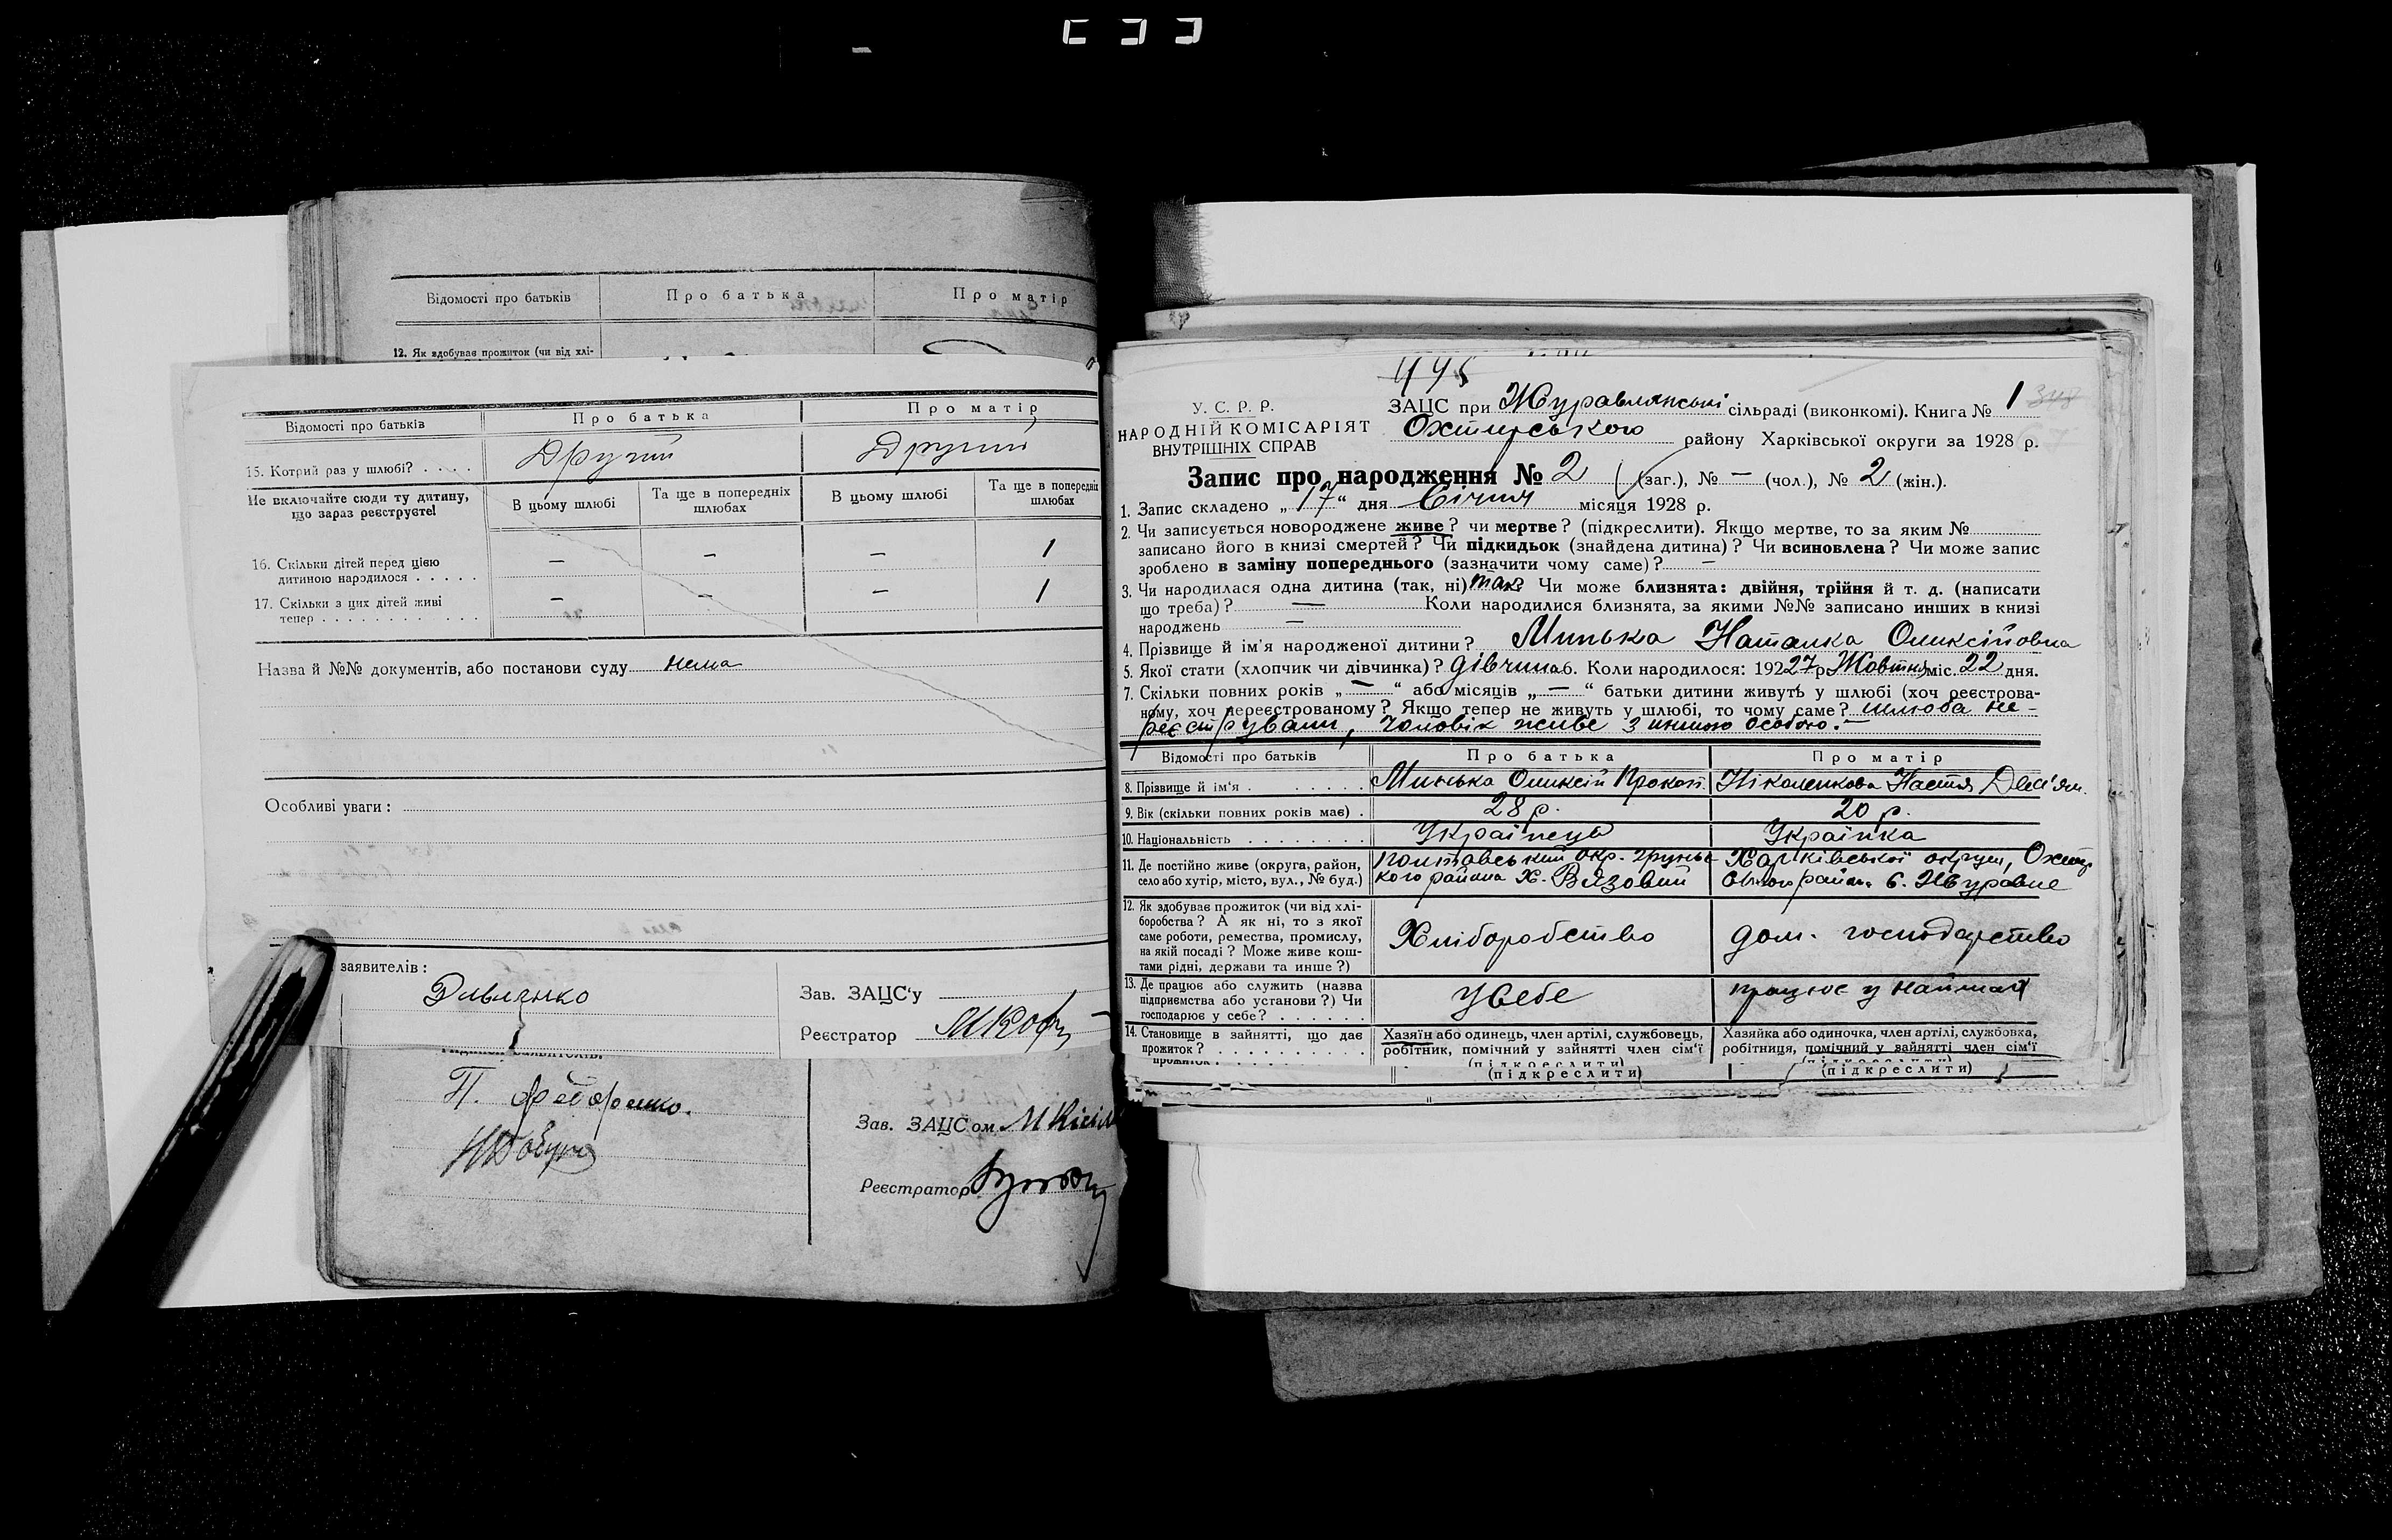 Відомості про батьків Про батька Про матір
12. Як здобуває прожиток (чи від хлі-
Відомості про батьків Про батька Про матір
15. Котрий раз у шлюбі? . . . . Другий Другий
Не включайте сюди ту дитину, що зараз реєструєте! В цьому шлюбі Та ще в попередніх шлюбах В цьому шлюбі Та ще в попередніх шлюбах
16. Скільки дітей перед цією
дитиною народилося . . . . . — — — 1
17. Скільки з цих дітей живі
тепер . . . . . . . . . . . . — — — 1
Назва й №№ документів, або постанови суду нема
Особливі уваги :
заявителів :
Зав. ЗАЦС'у
Реєстратор
П. Федоренко.
Зав. ЗАЦСом
Реєстратор
У. С. Р. Р.
НАРОДНІЙ КОМІСАРІЯТ
ВНУТРІШНІХ СПРАВ
ЗАЦС при Журавлянській сільраді (виконкомі). Книга № 1
Охтирського району Харківської округи за 1928 р.
Запис про народження № 2 (заг.), № — (чол.), № 2 (жін.).
1. Запис складено „ 17 “ дня Січня місяця 1928 р.
2. Чи записується новороджене живе? чи мертве? (підкреслити). Якщо мертве, то за яким №
записано його в книзі смертей? Чи підкидьок (знайдена дитина)? Чи всиновлена? Чи може запис
зроблено в заміну попереднього (зазначити чому саме)? —
3. Чи народилася одна дитина (так, ні) так Чи може близнята: двійня, трійня й т. д. (написати
що треба)? — Коли народилися близнята, за якими №№ записано инших в книзі
народжень —
4. Прізвище й ім'я народженої дитини? Минька Наталка Оликсійовна
5. Якої стати (хлопчик чи дівчинка)? дівчина 6. Коли народилося: 192 27 р Жовтня міс. 22 дня.
7. Скільки повних років „ — “ або місяців „ — “ батьки дитини живуть у шлюбі (хоч реєстрова-
ному, хоч нереєстрованому? Якщо тепер не живуть у шлюбі, то чому саме? шлюба не-
реєстрували, чоловік живе з иншою особою.—
Відомості про батьків Про батька Про матір
8. Прізвище й ім'я . Минька Оликсій Прокоп. Ніколенкова Настя Дем'ян.
9. Вік (скільки повних років має) . 28 р. 20 р.
10. Національність Українець Українка
11. Де постійно живе (округа, район, Полтавський окр. Грунсь- Харківської округи, Охтир
село або хутір, місто, вул., № буд.) кого району Х. Вязовий ського район. С. Журавне
12. Як здобуває прожиток (чи від хлі-
боробства? А як ні, то з якої
саме роботи, ремества, промислу, Хліборобство дом. господарство
на якій посаді? Може живе кош-
тами рідні, держави та инше?)
13. Де працює або служить (назва
підприємства або установи?) Чи у себе працює у наймах
господарює у себе? . . . . . .
14. Становище в зайнятті, що дає Хазяїн або одинець, член артілі, службовець, Хазяйка або одиночка, член артілі, службовка,
прожиток? . . . . . . . . . . робітник, помічний у зайнятті член сім'ї робітниця, помічний у зайнятті член сім'ї
(підкреслити) (підкреслити)